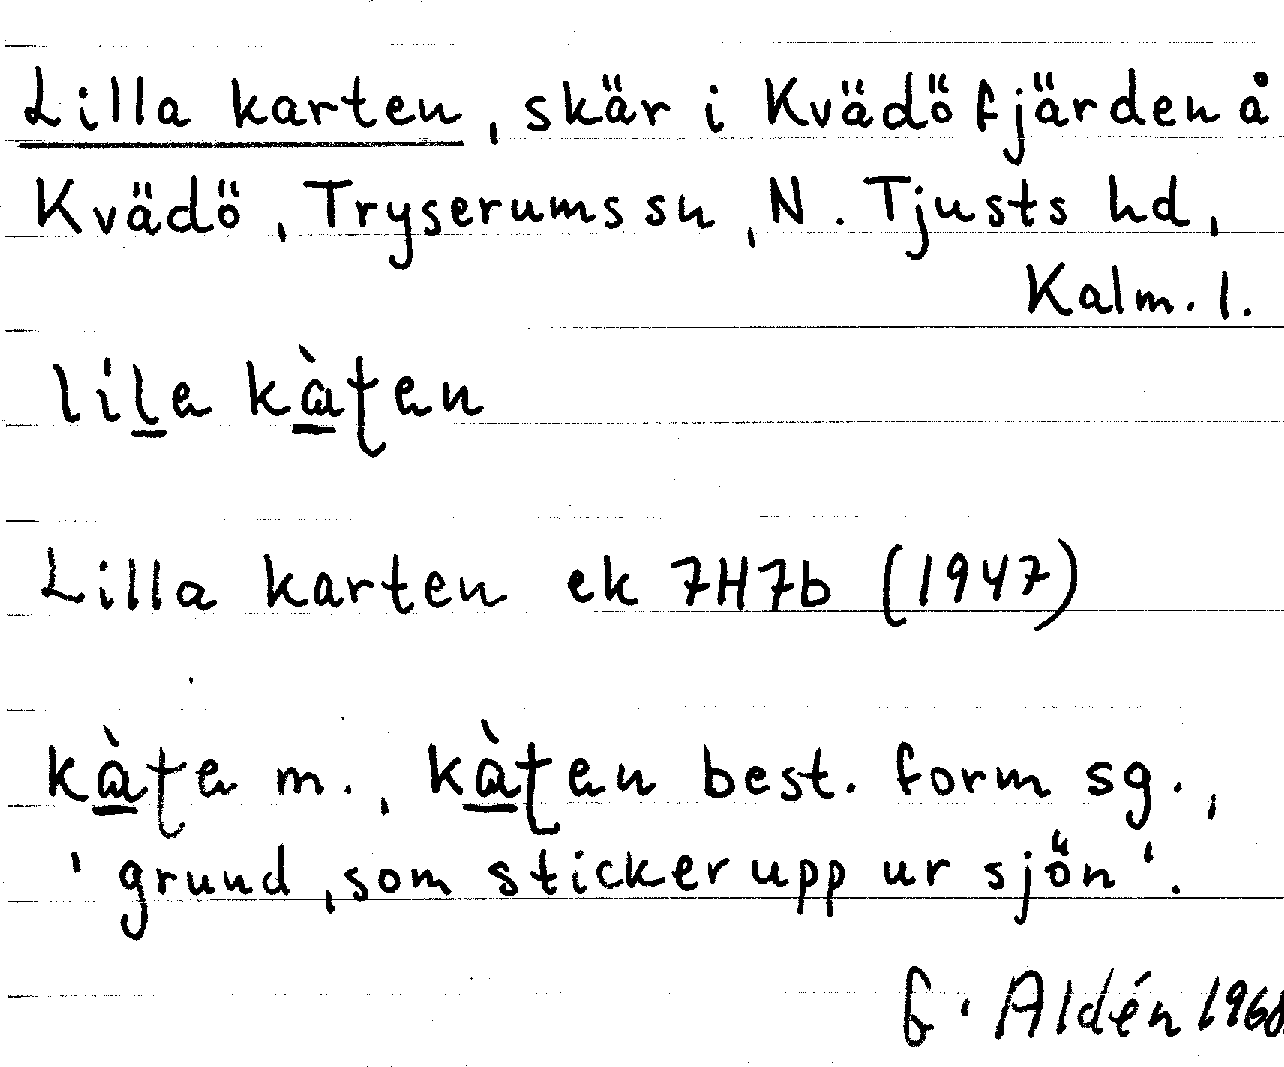 Lilla karten, skär i Kvädöfjärden å
Kvädö, Tryserums sn, N. Tjusts hd,
Kalm. l.
líl̲e kà̲ʈen
Lilla karten ek 7H7b (1947)
kà̲ʈe m., kà̲ʈen best. form sg.,
'grund, som sticker upp ur sjön'.
G. Aldén 1968